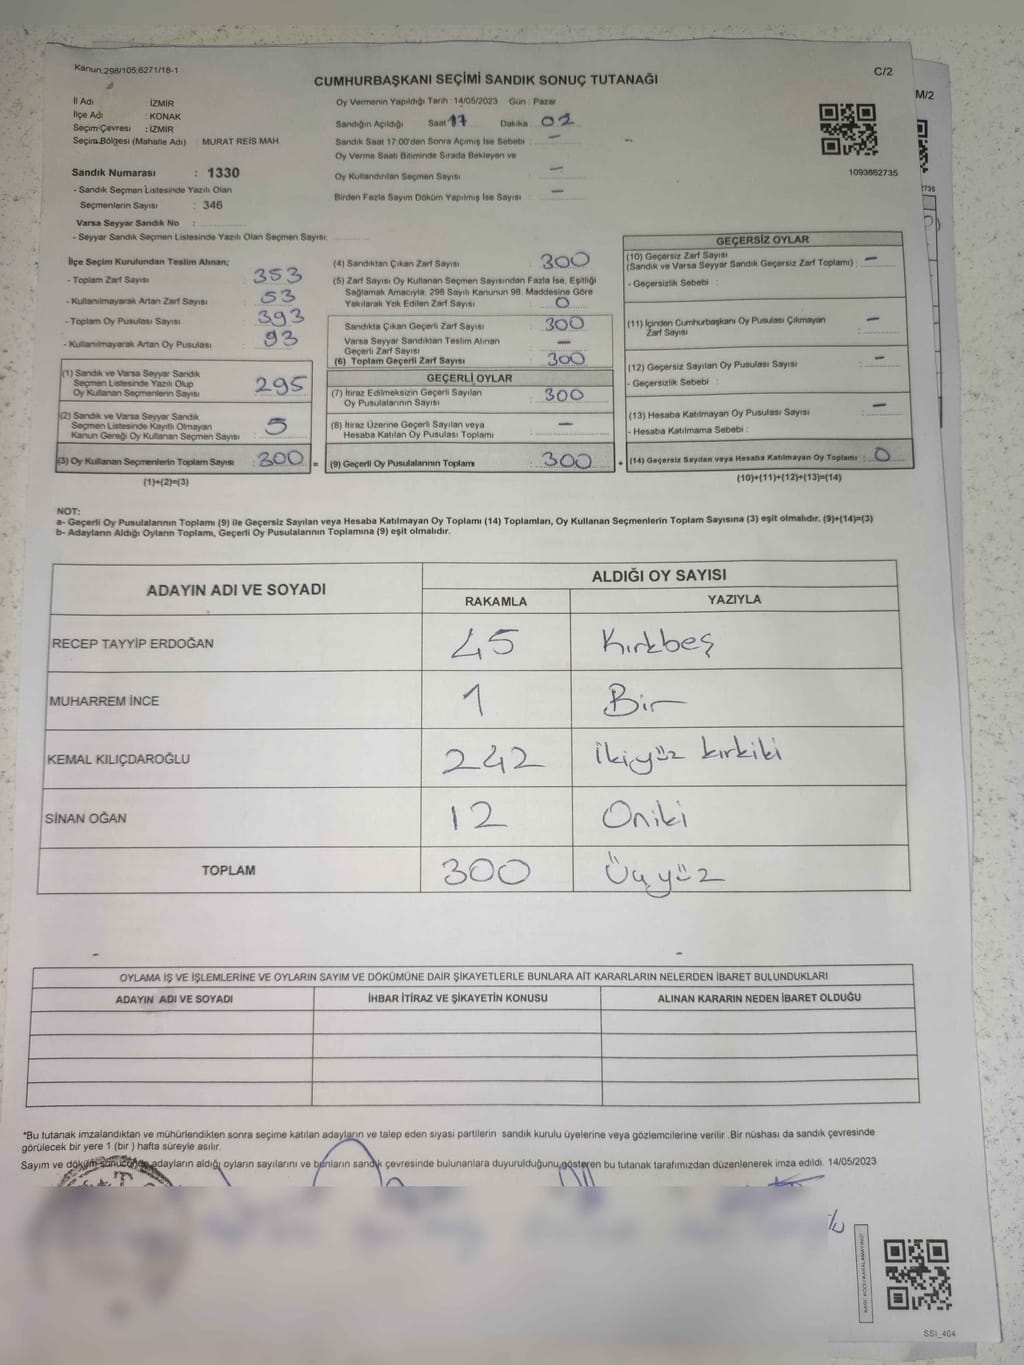 Kanun;298/105;6271/18-1
C/2
M/2
CUMHURBAŞKANI SEÇİMİ SANDIK SONUÇ TUTANAĞI
İl Adı İZMİR
İlçe Adı : KONAK
Seçim Çevresi : İZMİR
Seçim Bölgesi (Mahalle Adı) MURAT REİS MAH.
Sandık Numarası : 1330
- Sandık Seçmen Listesinde Yazılı Olan
Seçmenlerin Sayısı : 346
Varsa Seyyar Sandık No :
- Seyyar Sandık Seçmen Listesinde Yazılı Olan Seçmen Sayısı:
Oy Vermenin Yapıldığı Tarih : 14/05/2023 Gün : Pazar
Sandığın Açıldığı Saat 17 Dakika : 02
Sandık Saat 17:00'den Sonra Açımış İse Sebebi : -
Oy Verme Saati Bitiminde Sırada Bekleyen ve
Oy Kullandırılan Seçmen Sayısı : -
Birden Fazla Sayım Döküm Yapılmış İse Sayısı : -
1093862735
735
İlçe Seçim Kurulundan Teslim Alınan;
- Toplam Zarf Sayısı : 353
- Kullanılmayarak Artan Zarf Sayısı : 53
- Toplam Oy Pusulası Sayısı : 393
- Kullanılmayarak Artan Oy Pusulası : 93
(1) Sandık ve Varsa Seyyar Sandık
Seçmen Listesinde Yazılı Olup
Oy Kullanan Seçmenlerin Sayısı : 295
(2) Sandık ve Varsa Seyyar Sandık
Seçmen Listesinde Kayıtlı Olmayan
Kanun Gereği Oy Kullanan Seçmen Sayısı : 5
(3) Oy Kullanan Seçmenlerin Toplam Sayısı : 300 =
(1)+(2)=(3)
(4) Sandıktan Çıkan Zarf Sayısı : 300
(5) Zarf Sayısı Oy Kullanan Seçmen Sayısından Fazla İse, Eşitliği
Sağlamak Amacıyla, 298 Sayılı Kanunun 98. Maddesine Göre
Yakılarak Yok Edilen Zarf Sayısı : 0
Sandıkta Çıkan Geçerli Zarf Sayısı : 300
Varsa Seyyar Sandıktan Teslim Alınan
Geçerli Zarf Sayısı : -
(6) Toplam Geçerli Zarf Sayısı : 300
GEÇERLİ OYLAR
(7) İtiraz Edilmeksizin Geçerli Sayılan
Oy Pusulalarının Sayısı : 300
(8) İtiraz Üzerine Geçerli Sayılan veya
Hesaba Katılan Oy Pusulası Toplamı : -
(9) Geçerli Oy Pusulalarının Toplamı : 300 +
GEÇERSİZ OYLAR
(10) Geçersiz Zarf Sayısı
(Sandık ve Varsa Seyyar Sandık Geçersiz Zarf Toplamı) : -
- Geçersizlik Sebebi :
(11) İçinden Cumhurbaşkanı Oy Pusulası Çıkmayan
Zarf Sayısı : -
(12) Geçersiz Sayılan Oy Pusulası Sayısı : -
- Geçersizlik Sebebi :
(13) Hesaba Katılmayan Oy Pusulası Sayısı : -
- Hesaba Katılmama Sebebi :
(14) Geçersiz Sayılan veya Hesaba Katılmayan Oy Toplamı : 0
(10)+(11)+(12)+(13)=(14)
NOT:
a- Geçerli Oy Pusulalarının Toplamı (9) ile Geçersiz Sayılan veya Hesaba Katılmayan Oy Toplamı (14) Toplamları, Oy Kullanan Seçmenlerin Toplam Sayısına (3) eşit olmalıdır. (9)+(14)=(3)
b- Adayların Aldığı Oyların Toplamı, Geçerli Oy Pusulalarının Toplamına (9) eşit olmalıdır.
ADAYIN ADI VE SOYADI ALDIĞI OY SAYISI
RAKAMLA YAZIYLA
RECEP TAYYİP ERDOĞAN 45 Kırkbeş
MUHARREM İNCE 1 Bir
KEMAL KILIÇDAROĞLU 242 İkiyüz kırkiki
SİNAN OĞAN 12 Oniki
TOPLAM 300 Üçyüz
OYLAMA İŞ VE İŞLEMLERİNE VE OYLARIN SAYIM VE DÖKÜMÜNE DAİR ŞİKAYETLERLE BUNLARA AİT KARARLARIN NELERDEN İBARET BULUNDUKLARI
ADAYIN ADI VE SOYADI İHBAR İTİRAZ VE ŞİKAYETİN KONUSU ALINAN KARARIN NEDEN İBARET OLDUĞU
*Bu tutanak imzalandıktan ve mühürlendikten sonra seçime katılan adayların ve talep eden siyasi partilerin sandık kurulu üyelerine veya gözlemcilerine verilir .Bir nüshası da sandık çevresinde
görülecek bir yere 1 (bir ) hafta süreyle asılır.
Sayım ve döküm sonucunda adayların aldığı oyların sayılarını ve bunların sandık çevresinde bulunanlara duyurulduğunu gösteren bu tutanak tarafımızdan düzenlenerek imza edildi. 14/05/2023
KARE KODU KARALAMAYINIZ!
SSI_404